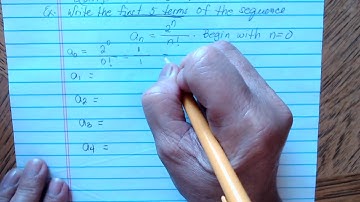 Ex. Write the first 5 terms of the sequence
aₙ = 2ⁿ/n! . Begin with n=0
a₀ = 2⁰/n! = 1/1
a₁ =
a₂ =
a₃ =
a₄ =